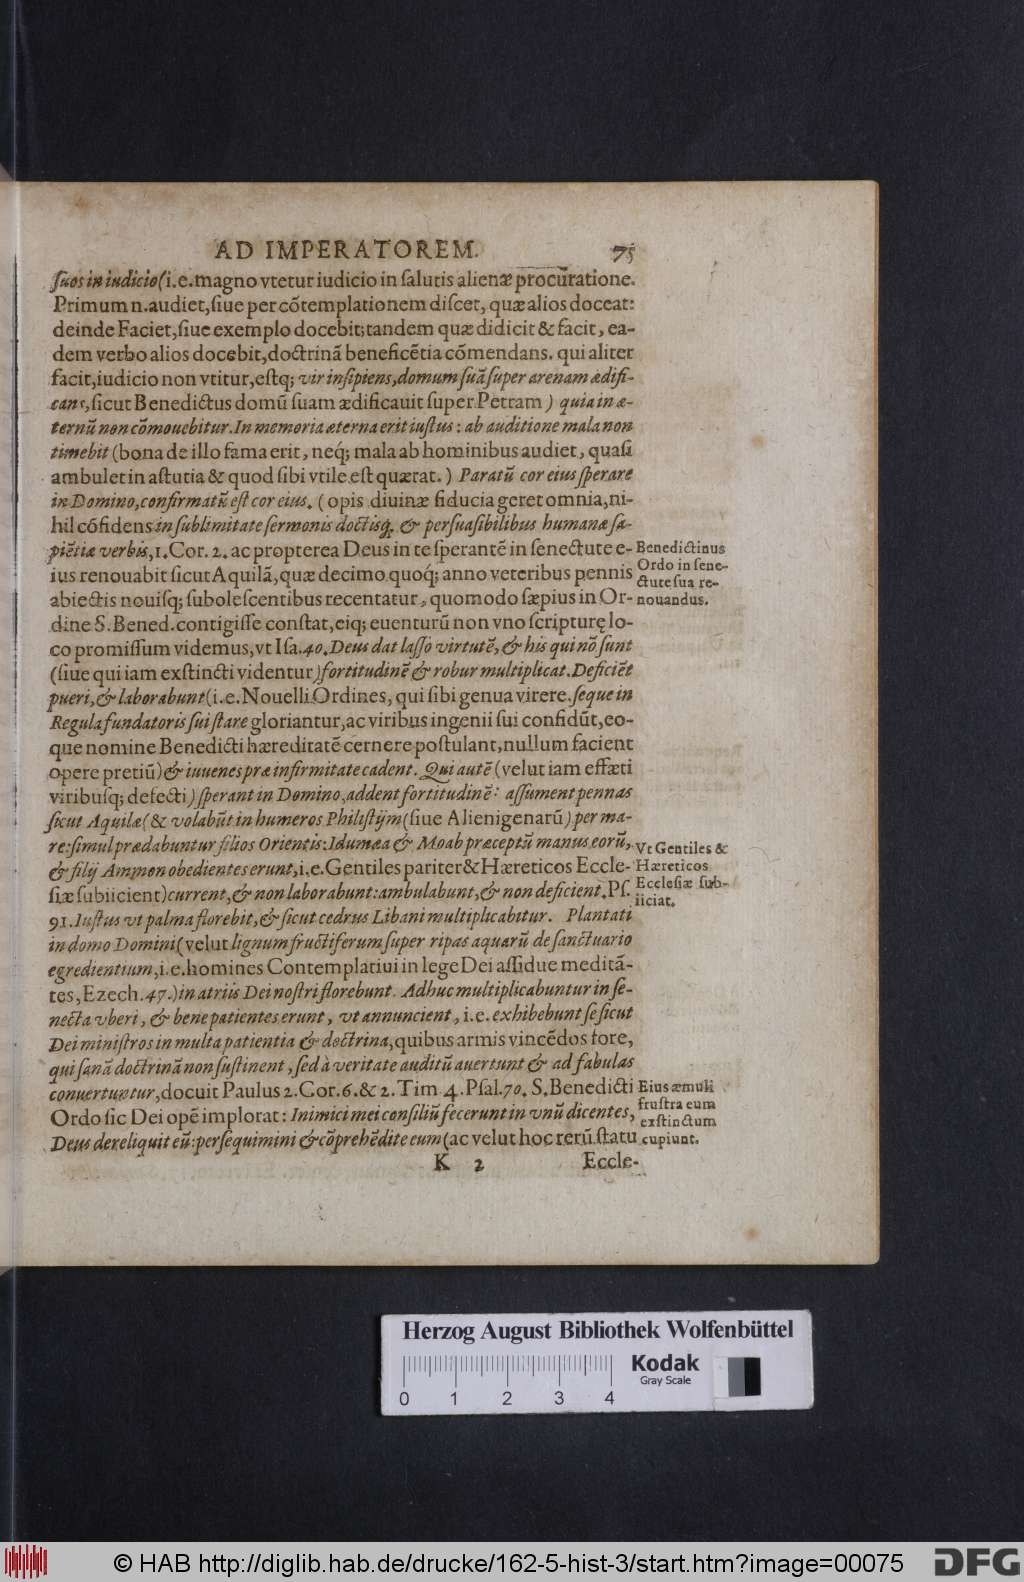 AD IMPERATOREM. 75
ſuos in iudicio (i.e. magno vtetur iudicio in ſalutis alienæ procuratione.
Primum n. audiet, ſiue per cõtemplationem diſcet, quæ alios doceat:
deinde Faciet, ſiue exemplo docebit; tandem quæ didicit & facit, ea-
dem verbo alios docebit, doctrinã beneficẽtia cõmendans. qui aliter
facit, iudicio non vtitur, eſtq; vir inſipiens, domum ſuã ſuper arenam ædifi-
cans, ſicut Benedictus domũ ſuam ædificauit ſuper Petram) quia in æ-
ternũ non cõmouebitur. In memoria æterna erit iuſtus: ab auditione mala non
timebit (bona de illo fama erit, neq́; mala ab hominibus audiet, quaſi
ambulet in aſtutia & quod ſibi vtile eſt quærat.) Paratũ cor eius ſperare
in Domino, confirmatũ eſt cor eius. (opis diuinæ fiducia geret omnia, ni-
hil cõfidens in ſublimitate ſermonis doctisq́, & perſuaſibilibus humanæ ſa-
piẽtiæ verbis, 1. Cor. 2. ac propterea Deus in te ſperantẽ in ſenectute e-
ius renouabit ſicut Aquilã, quæ decimo quoq́; anno veteribus pennis
abiectis nouiſq; ſuboleſcentibus recentatur, quomodo ſæpius in Or-
dine S. Bened. contigiſſe conſtat, eiq; euenturũ non vno ſcripturę lo-
co promiſſum videmus, vt Iſa. 40. Deus dat laſſo virtutẽ, & his qui nõ ſunt
(ſiue qui iam exſtincti videntur) fortitudinẽ & robur multiplicat. Deficiẽt
pueri, & laborabunt (i.e. Nouelli Ordines, qui ſibi genua virere. ſeque in
Regula fundatoris ſui ſtare gloriantur, ac viribus ingenii ſui confidũt, eo-
que nomine Benedicti hæreditatẽ cernere poſtulant, nullum facient
opere pretiũ) & iuuenes præ infirmitate cadent. Qui autẽ (velut iam effæti
viribuſq; defecti) ſperant in Domino, addent fortitudinẽ: aſſument pennas
ſicut Aquilæ (& volabũt in humeros Philiſtijm (ſiue Alienigenarũ) per ma-
re: ſimul prædabuntur filios Orientis: Idumæa & Moab præceptũ manus eorũ,
& filij Ammon obedientes erunt, i.e. Gentiles pariter & Hæreticos Eccle-
ſiæ ſubiicient) current, & non laborabunt: ambulabunt, & non deficient. Pſ.
91. Iuſtus vt palma florebit, & ſicut cedrus Libani multiplicabitur. Plantati
in domo Domini (velut lignum fructiferum ſuper ripas aquarũ de ſanctuario
egredientium, i.e. homines Contemplatiui in lege Dei aſſidue meditã-
tes, Ezech. 47.) in atriis Dei noſtri florebunt. Adhuc multiplicabuntur in ſe-
necta vberi, & bene patientes erunt, vt annuncient, i.e. exhibebunt ſe ſicut
Dei miniſtros in multa patientia & doctrina, quibus armis vincẽdos fore,
qui ſanã doctrinã non ſuſtinent, ſed à veritate auditũ auertunt & ad fabulas
conuertuntur, docuit Paulus 2. Cor. 6. & 2. Tim 4. Pſal. 70. S. Benedicti
Ordo ſic Dei opẽ implorat: Inimici mei conſiliũ fecerunt in vnũ dicentes,
Deus dereliquit eũ: perſequimini & cõprehẽdite eum (ac velut hoc rerũ ſtatu
K 2 Eccle-
Benedictinus
Ordo in ſene-
ctute ſua re-
nouandus.
Vt Gentiles &
Hæreticos
Eccleſiæ ſub-
iiciat.
Eius æmuli
fruſtra eum
exſtinctum
cupiunt.
Herzog August Bibliothek Wolfenbüttel
Kodak
Gray Scale
0 1 2 3 4
© HAB http://diglib.hab.de/drucke/162-5-hist-3/start.htm?image=00075
DFG